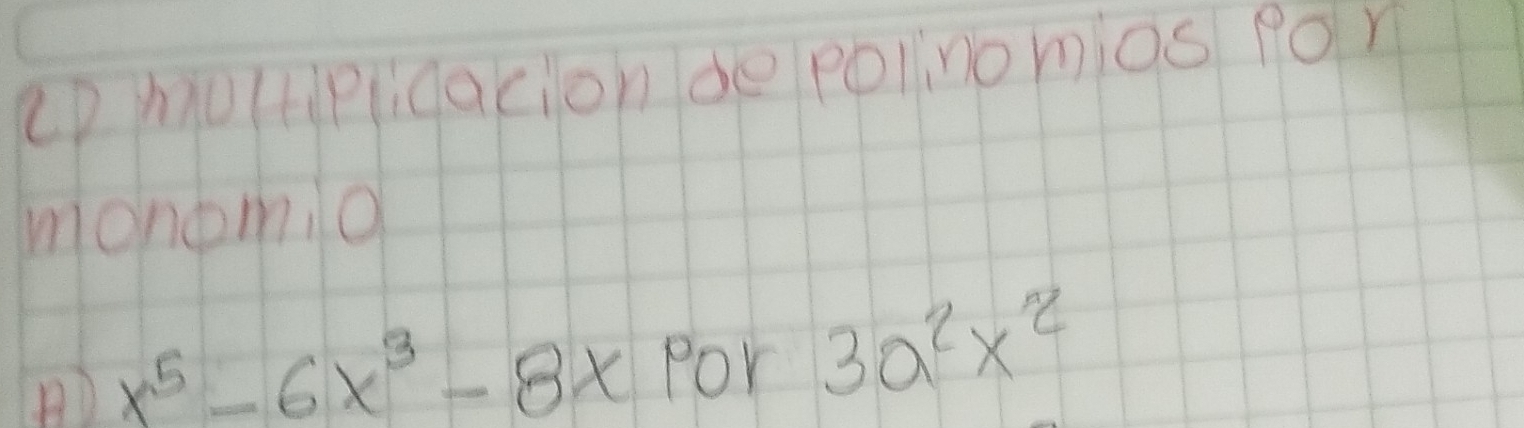 2) multiplicacion de polinomios por
monomio
A) x⁵ - 6x³ - 8x por 3a²x²